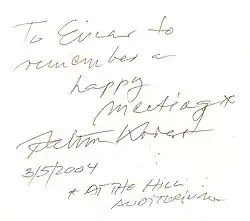 To Einar to
remember a
happy
meeting *
3/5/2004
* AT THE HILL
AUDITORIUM